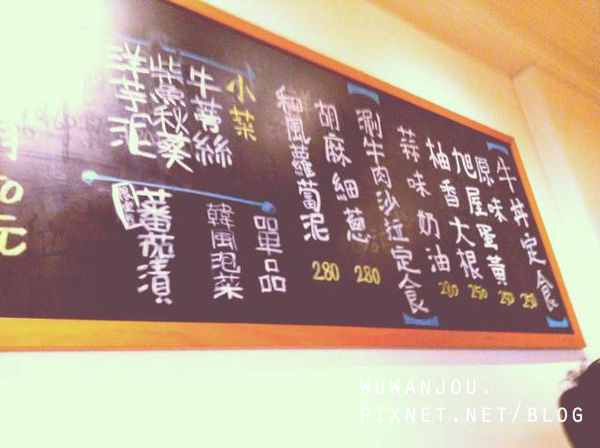 牛丼定食
原味 250
旭屋蛋黃 250
柚香大根 250
蒜味奶油 280
涮牛肉沙拉定食
胡麻細蔥 280
和風蘿蔔泥 280
小菜
牛蒡絲
柴魚秋葵
洋芋泥
單品
韓風泡菜
蕃茄漬
元
WUWANJOU.
PIXNET.NET/BLOG